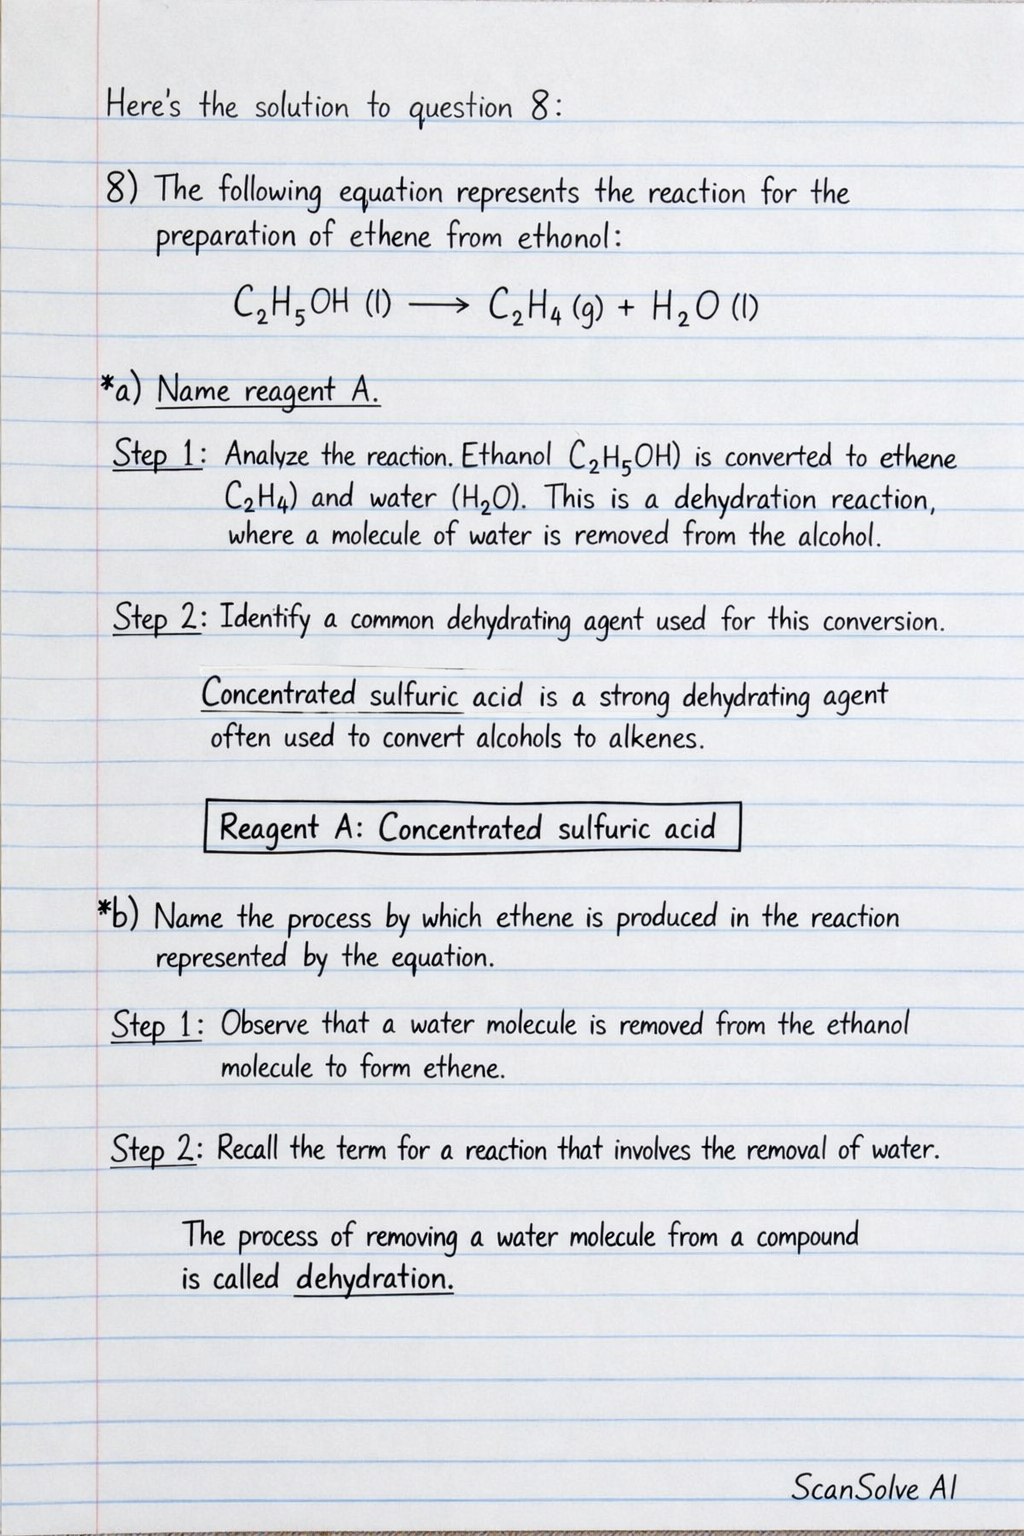 Here's the solution to question 8:
8) The following equation represents the reaction for the
preparation of ethene from ethonol:
C₂H₅OH (l) ⟶ C₂H₄ (g) + H₂O (l)
*a) Name reagent A.
Step 1: Analyze the reaction. Ethanol C₂H₅OH) is converted to ethene
C₂H₄) and water (H₂O). This is a dehydration reaction,
where a molecule of water is removed from the alcohol.
Step 2: Identify a common dehydrating agent used for this conversion.
Concentrated sulfuric acid is a strong dehydrating agent
often used to convert alcohols to alkenes.
Reagent A: Concentrated sulfuric acid
*b) Name the process by which ethene is produced in the reaction
represented by the equation.
Step 1: Observe that a water molecule is removed from the ethanol
molecule to form ethene.
Step 2: Recall the term for a reaction that involves the removal of water.
The process of removing a water molecule from a compound
is called dehydration.
ScanSolve AI